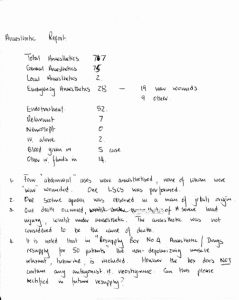 Anaesthetic Report
Total Anaesthetics 77
General Anaesthetics 75
Local Anaesthetics 2
Emergency Anaesthetics 28 — 19 war wounds
9 other.
Endotracheal 52.
Relaxant 7
0
alone 2.
Blood given in 5 case
Other iv fluids in 14.
1. Four "abdominal" cases were anaesthetised, none of whom were
"war" wounded. One LSCS was performed.
2. One
3. One death occurred, had
injury, under anaesthetic. The anaesthetic was not
considered to be the cause of death.
4. It is noted that in Resupply Box No 4 Anaesthetic / Drugs
resupply for 50 patients the non-depolarizing muscle
relaxant is included. However the box does NOT
contain any antagonist ie. neostigmine. Can this please
be rectified in future resupply?